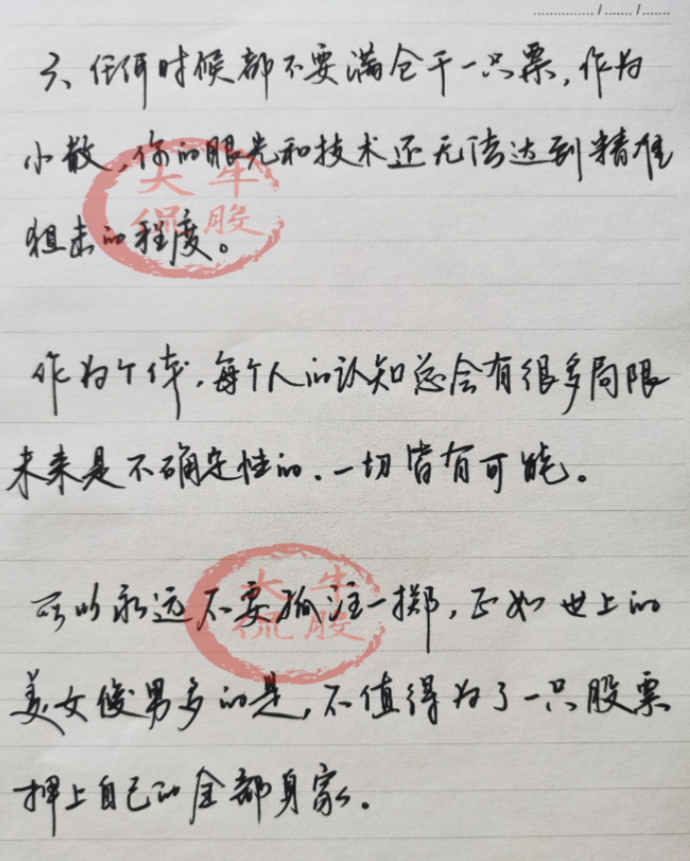 六、任何时候都不要满仓干一只票，作为
小散，你的眼光和技术还无法达到精准
狙击的程度。
作为个体，每个人的认知总会有很多局限
未来是不确定性的，一切皆有可能。
所以永远不要孤注一掷，正如世上的
美女俊男多的是，不值得为了一只股票
押上自己的全部身家。
大牛
侃股
大牛
侃股